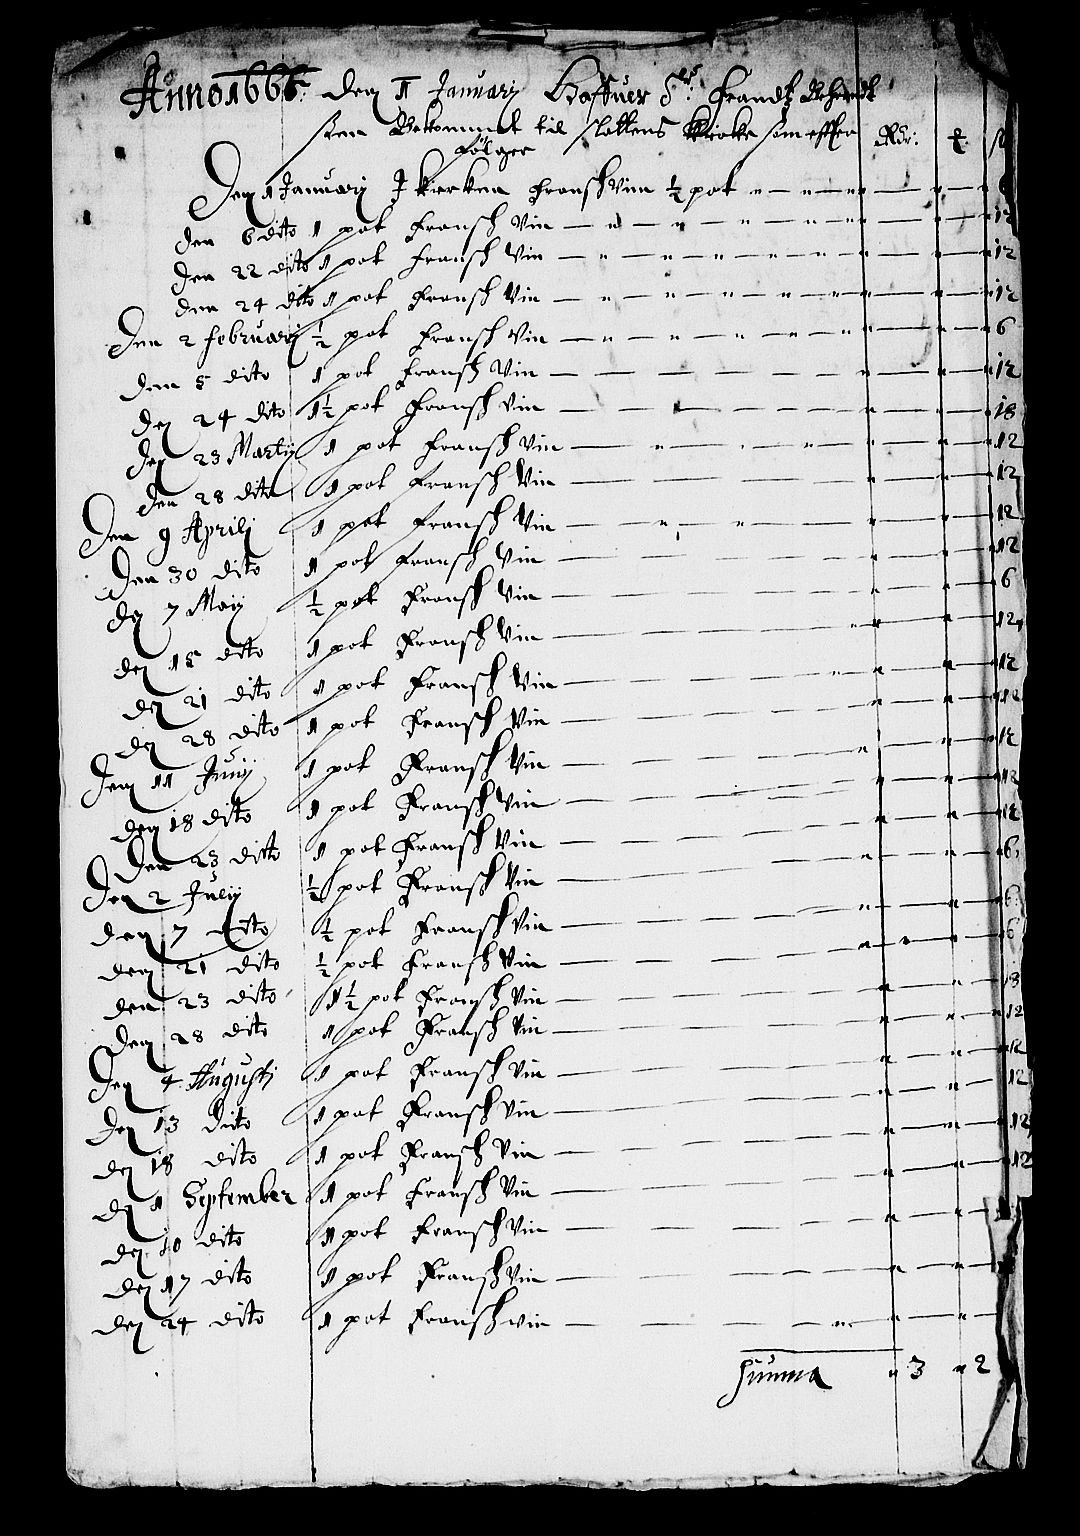 Anno 1666: den 1 Januarij Haffuer Sr: Frandtz
sten Bekommet til slottens Kircke som effter
følger Rdr: ₰ ß
Den 1 Januarij J Kircken Fransk Vin ½ pot 6
den 6 dito 1 pot Fransch Vin 12
den 22 dito 1 pot fransch Vin 12
den 24 dito 1 pot Fransch Vin 12
Den 2 februarij ½ pot Fransch Vin 6
dem 5 dito 1 pot Fransch Vin 12
den 24 dito 1½ pot Fransch Vin 18
den 23 Martij 1 pot Fransch Vin 12
den 28 dito 1 pot Fransch Vin 12
Den 9 Aprilj 1 pot Fransch Vin 12
Den 30 dito 1 pot Fransch Vin 12
den 7 Maij ½ pot Fransch Vin 6
den 15 dito 1 pot Fransch Vin 12
den 21 dito 1 pot Fransch Vin 12
den 28 dito 1 pot Fransch Vin 12
Den 11 Junij 1 pot Fransch Vin 12
den 18 dito 1 pot Fransch Vin 12
Den 23 ditto 1 pot Fransch Vin 12
Den 2 Julij ½ pot Fransch Vin 6
den 7 dito ½ pot Fransch Vin 6
den 21 dito ½ pot Fransch Vin 6
den 23 dito 1½ pot Fransch Vin 18
Den 28 dito 1 pot Fransch Vin 12
Den 4 Augustj 1 pot Fransch Vin 12
Den 13 Dito 1 pot Fransch Vin 12
den 18 dito 1 pot Fransch Vin 12
den 1 September 1 pot Fransch Vin 12
den 10 dito 1 pot Fransch Vin
den 17 dito 1 pot Fransch Vin
den 24 dito 1 pot Fransch vin
Summa 3 2